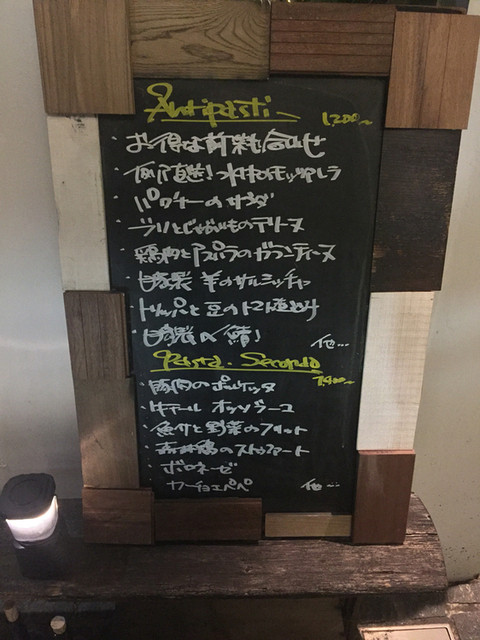 Antipasti 1,200~
・お得な前菜盛合わせ
・直送! 水牛のモッツァレラ
・パクチーのサラダ
・とじゃがいものテリーヌ
・鶏肉とアスパラのガランティーヌ
・自家製 羊のサルシッチャ
・トリッパと豆のトマト煮込み
・自家製〆鯖! 他…
Pasta. Secondo 1,400~
・豚肉のポルケッタ
・牛テール オッソブーコ
・魚介と野菜のフリット
・鶏のストゥファート
・ボロネーゼ
・カーチョエペペ 他…